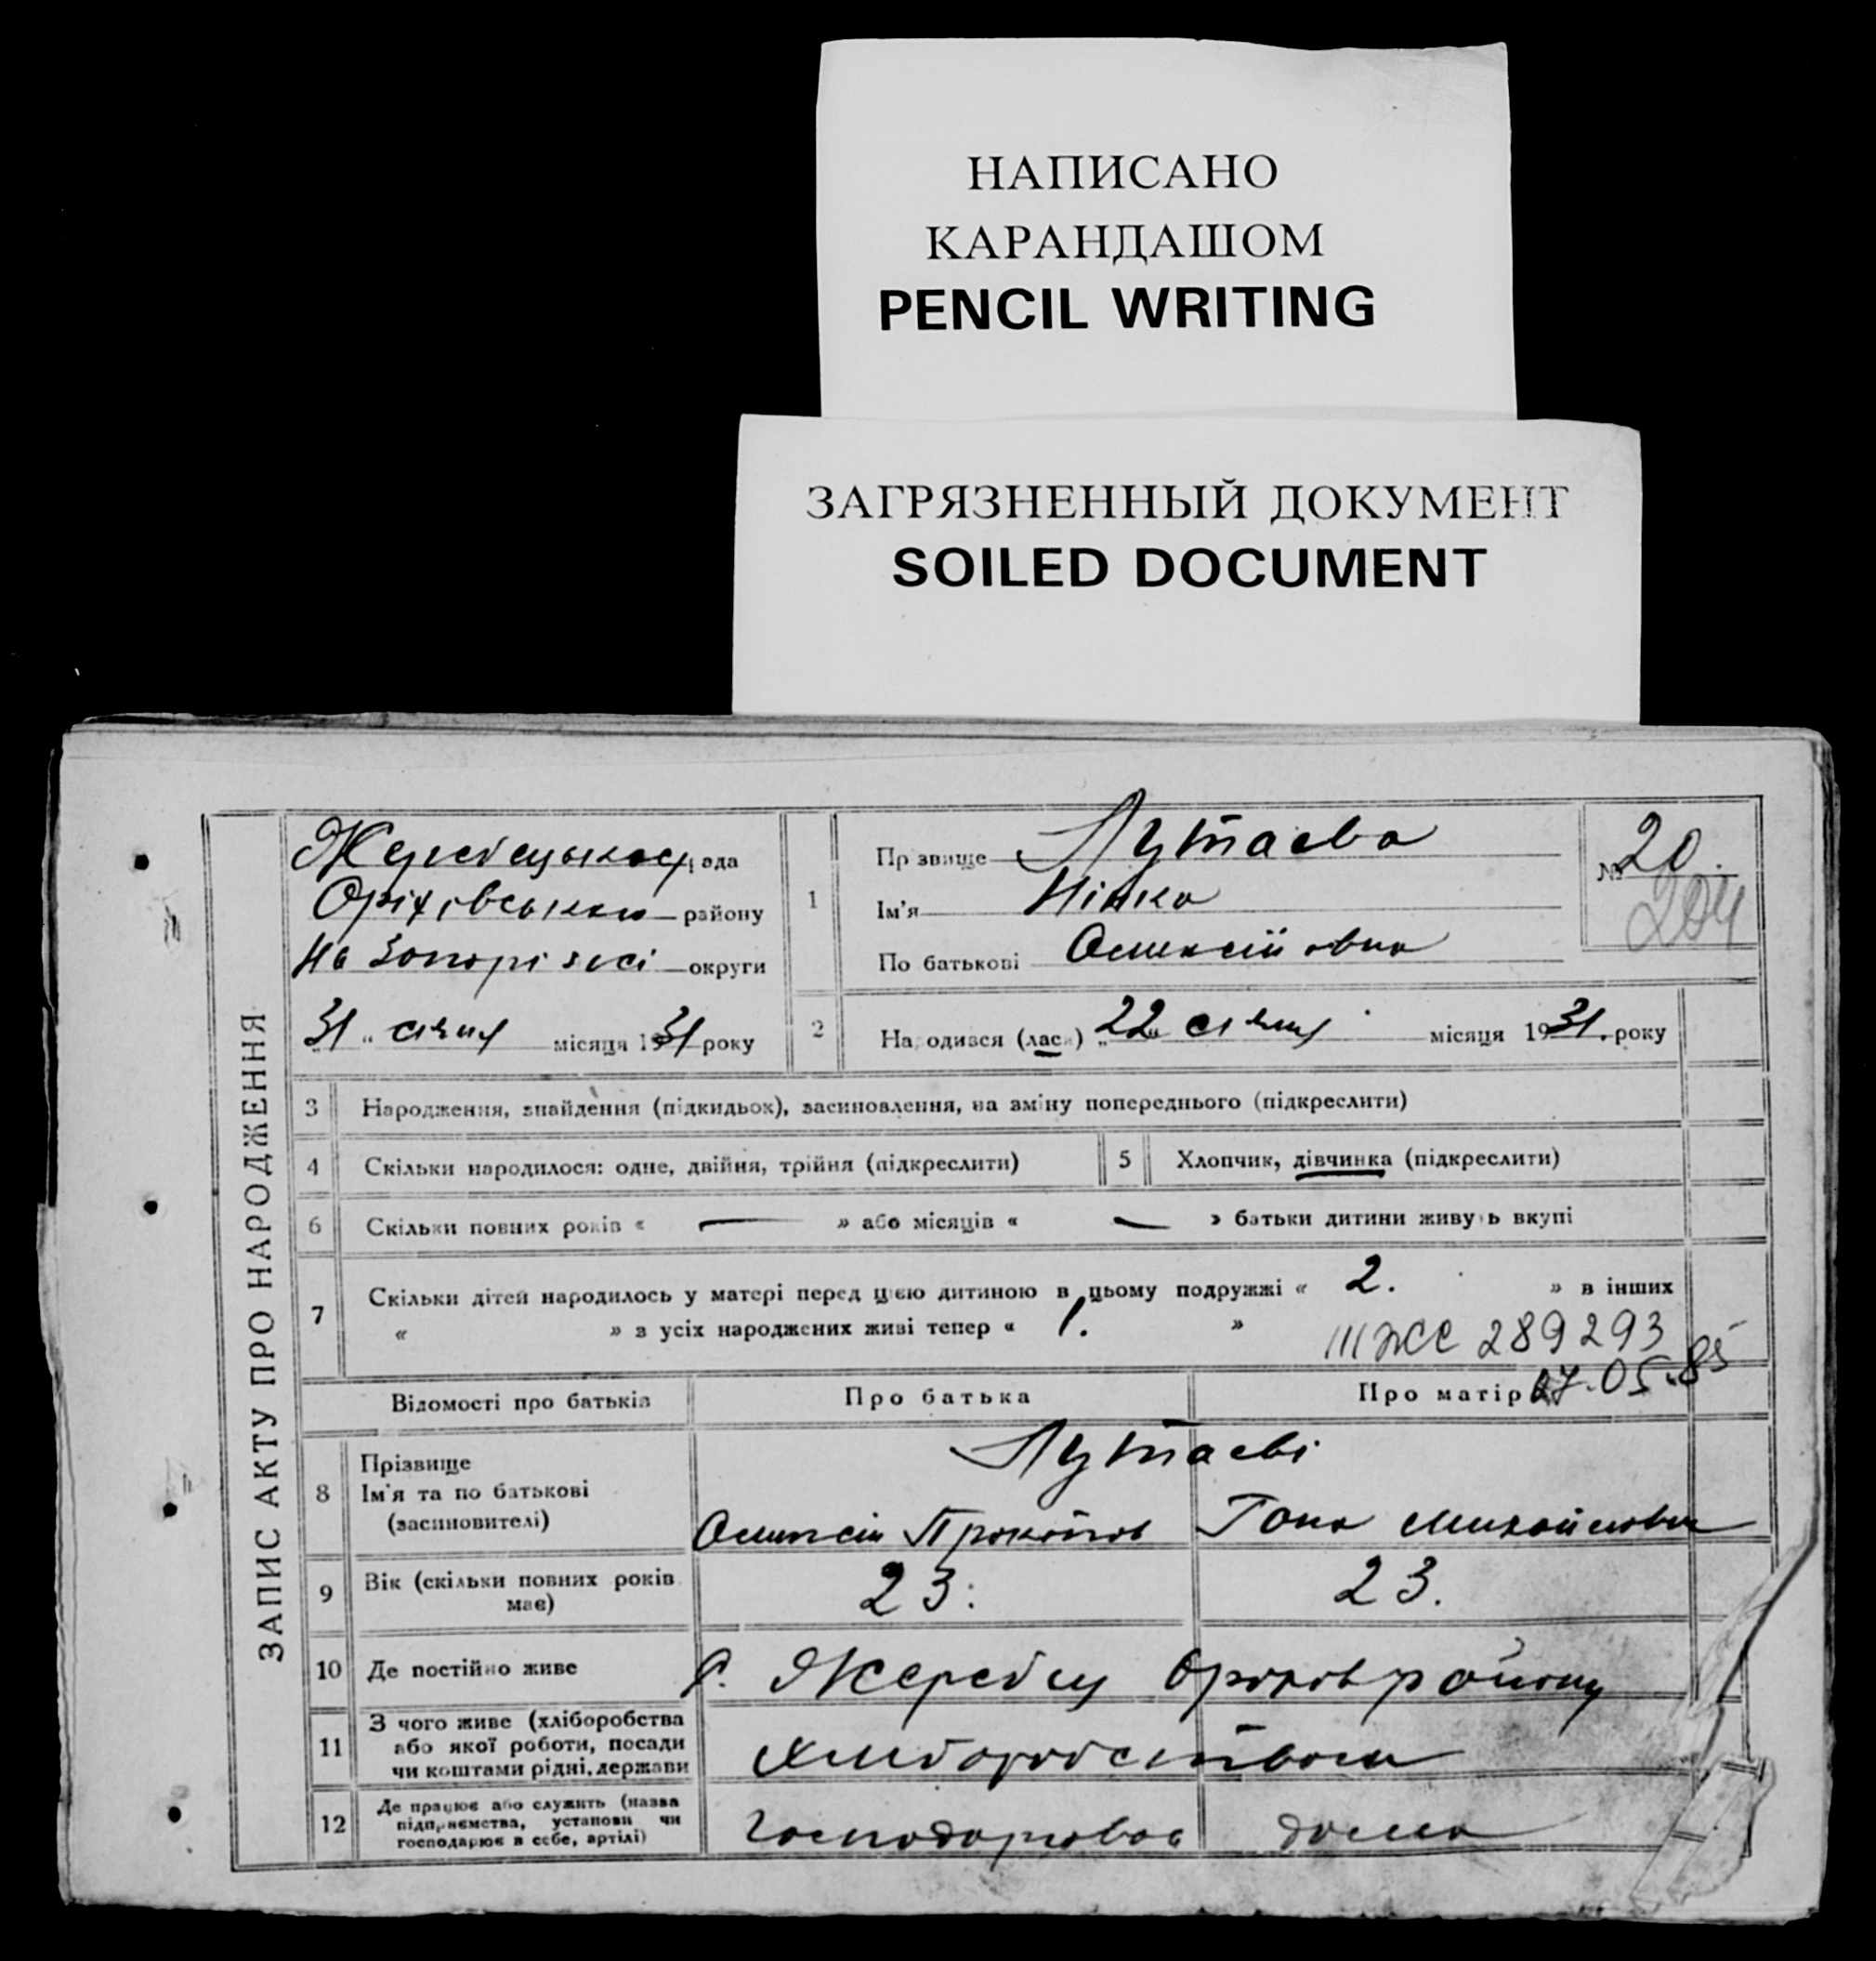 НАПИСАНО
КАРАНДАШОМ
PENCIL WRITING
ЗАГРЯЗНЕННЫЙ ДОКУМЕНТ
SOILED DOCUMENT
ЗАПИС АКТУ ПРО НАРОДЖЕННЯ
рада
Оріхівського району
На Запоріжжі округи
31 " січня місяця 1931 року
1
Прізвище Лутаева
Ім'я Нінка
По батькові Олексійовна
№ 20.
204
2 Народився (лась) "22" січня місяця 1931. року
3 Народження, знайдення (підкидьок), засиновлення, на зміну попереднього (підкреслити)
4 Скільки народилося: одне, двійня, трійня (підкреслити)
5 Хлопчик, дівчинка (підкреслити)
6 Скільки повних років « — » або місяців « — » батьки дитини живуть вкупі
7 Скільки дітей народилось у матері перед цією дитиною в цьому подружжі « 2. » в інших
« » з усіх народжених живі тепер « 1. »
III ЖС 289293
27.05.85
Відомості про батьків Про батька Про матір
8 Прізвище Лутаеві
Ім'я та по батькові
(засиновителі) Олексій Прокопов Михайловна
9 Вік (скільки повних років
має) 23. 23.
10 Де постійно живе с. Жеребец Орохов району
11 З чого живе (хліборобства
або якої роботи, посади
чи коштами рідні, держави
хліборобством
12 Де працює або служить (назва
підприємства, установи чи
господарює в себе, артілі)
дома